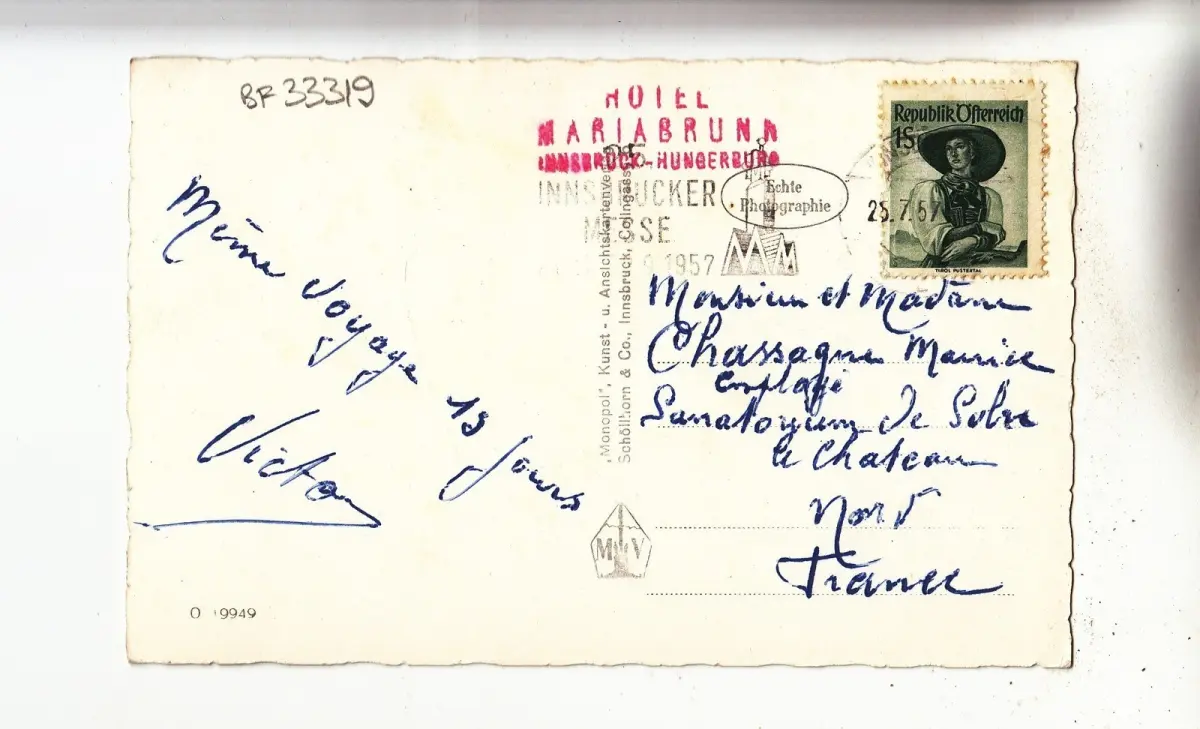 BF 33319
HOTEL
MARIABRUNN
INNSBRUCK-HUNGERBURG
INNSBRUCKER
MESSE
1957
Echte
Photographie
25.7.57
Republik Österreich
1S
TIROL PUSTERTAL
Même voyage 13 jours
Victor
„Monopol", Kunst- u. Ansichtskartenver
Schöllhorn & Co., Innsbruck, Collingass
Monsieur et Madame
Chassagne Maurice
employé
Sanatorium de Solre
le Chateau
Nord
France
M V
O 19949